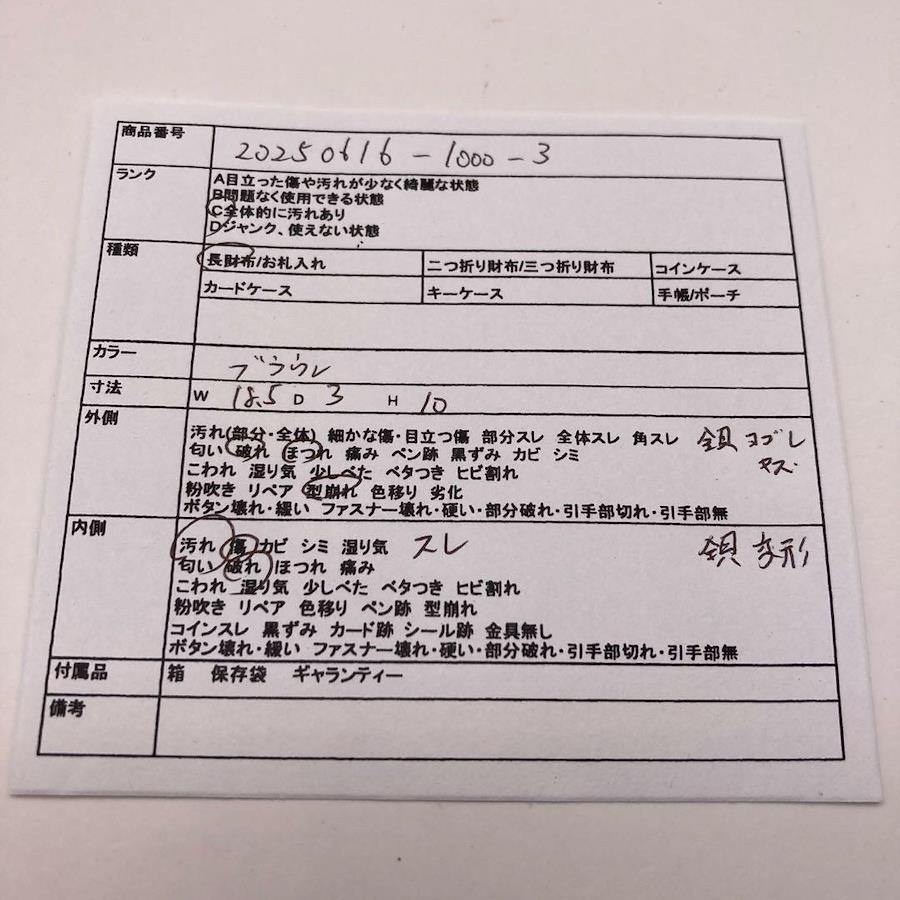 商品番号 20250616-1000-3
ランク
A目立った傷や汚れが少なく綺麗な状態
B問題なく使用できる状態
C全体的に汚れあり
Dジャンク、使えない状態
種類
長財布/お札入れ 二つ折り財布/三つ折り財布 コインケース
カードケース キーケース 手帳/ポーチ
カラー ブラウン
寸法 W 18.5 D 3 H 10
外側
汚れ(部分・全体) 細かな傷・目立つ傷 部分スレ 全体スレ 角スレ
匂い 破れ ほつれ 痛み ペン跡 黒ずみ カビ シミ
こわれ 湿り気 少しべた ベタつき ヒビ割れ
粉吹き リペア 型崩れ 色移り 劣化
ボタン壊れ・緩い ファスナー壊れ・硬い・部分破れ・引手部切れ・引手部無
内側
汚れ 傷 カビ シミ 湿り気 スレ 変形
匂い 破れ ほつれ 痛み
こわれ 湿り気 少しべた ベタつき ヒビ割れ
粉吹き リペア 色移り ペン跡 型崩れ
コインスレ 黒ずみ カード跡 シール跡 金具無し
ボタン壊れ・緩い ファスナー壊れ・硬い・部分破れ・引手部切れ・引手部無
付属品 箱 保存袋 ギャランティー
備考